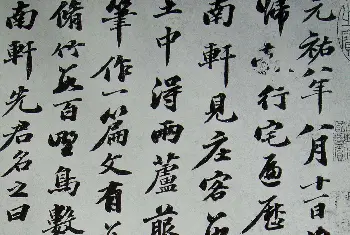 元祐八年八月十一日
歸行宅遍歷
南軒見庄客
土中得兩蘆菔
筆作一篇文有
脩竹數百野鳥數
南軒先君名之曰